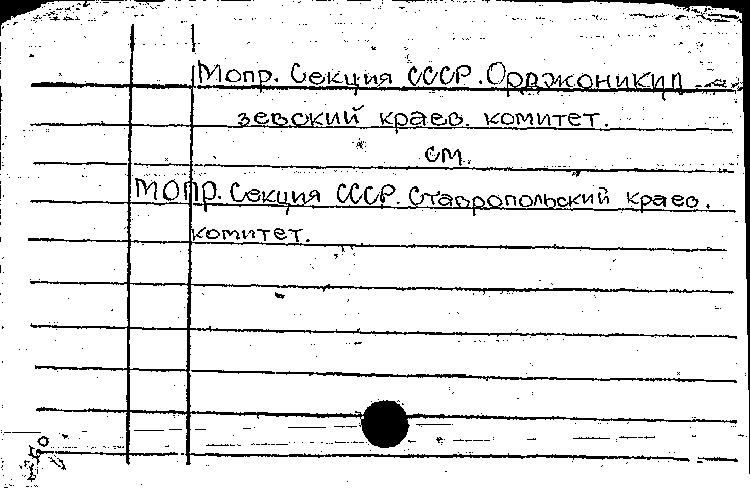 Мопр. Секция СССР. Орджоникид
зевский краев. комитет.
см.
МОПР. Секция СССР. Ставропольский краев.
комитет.